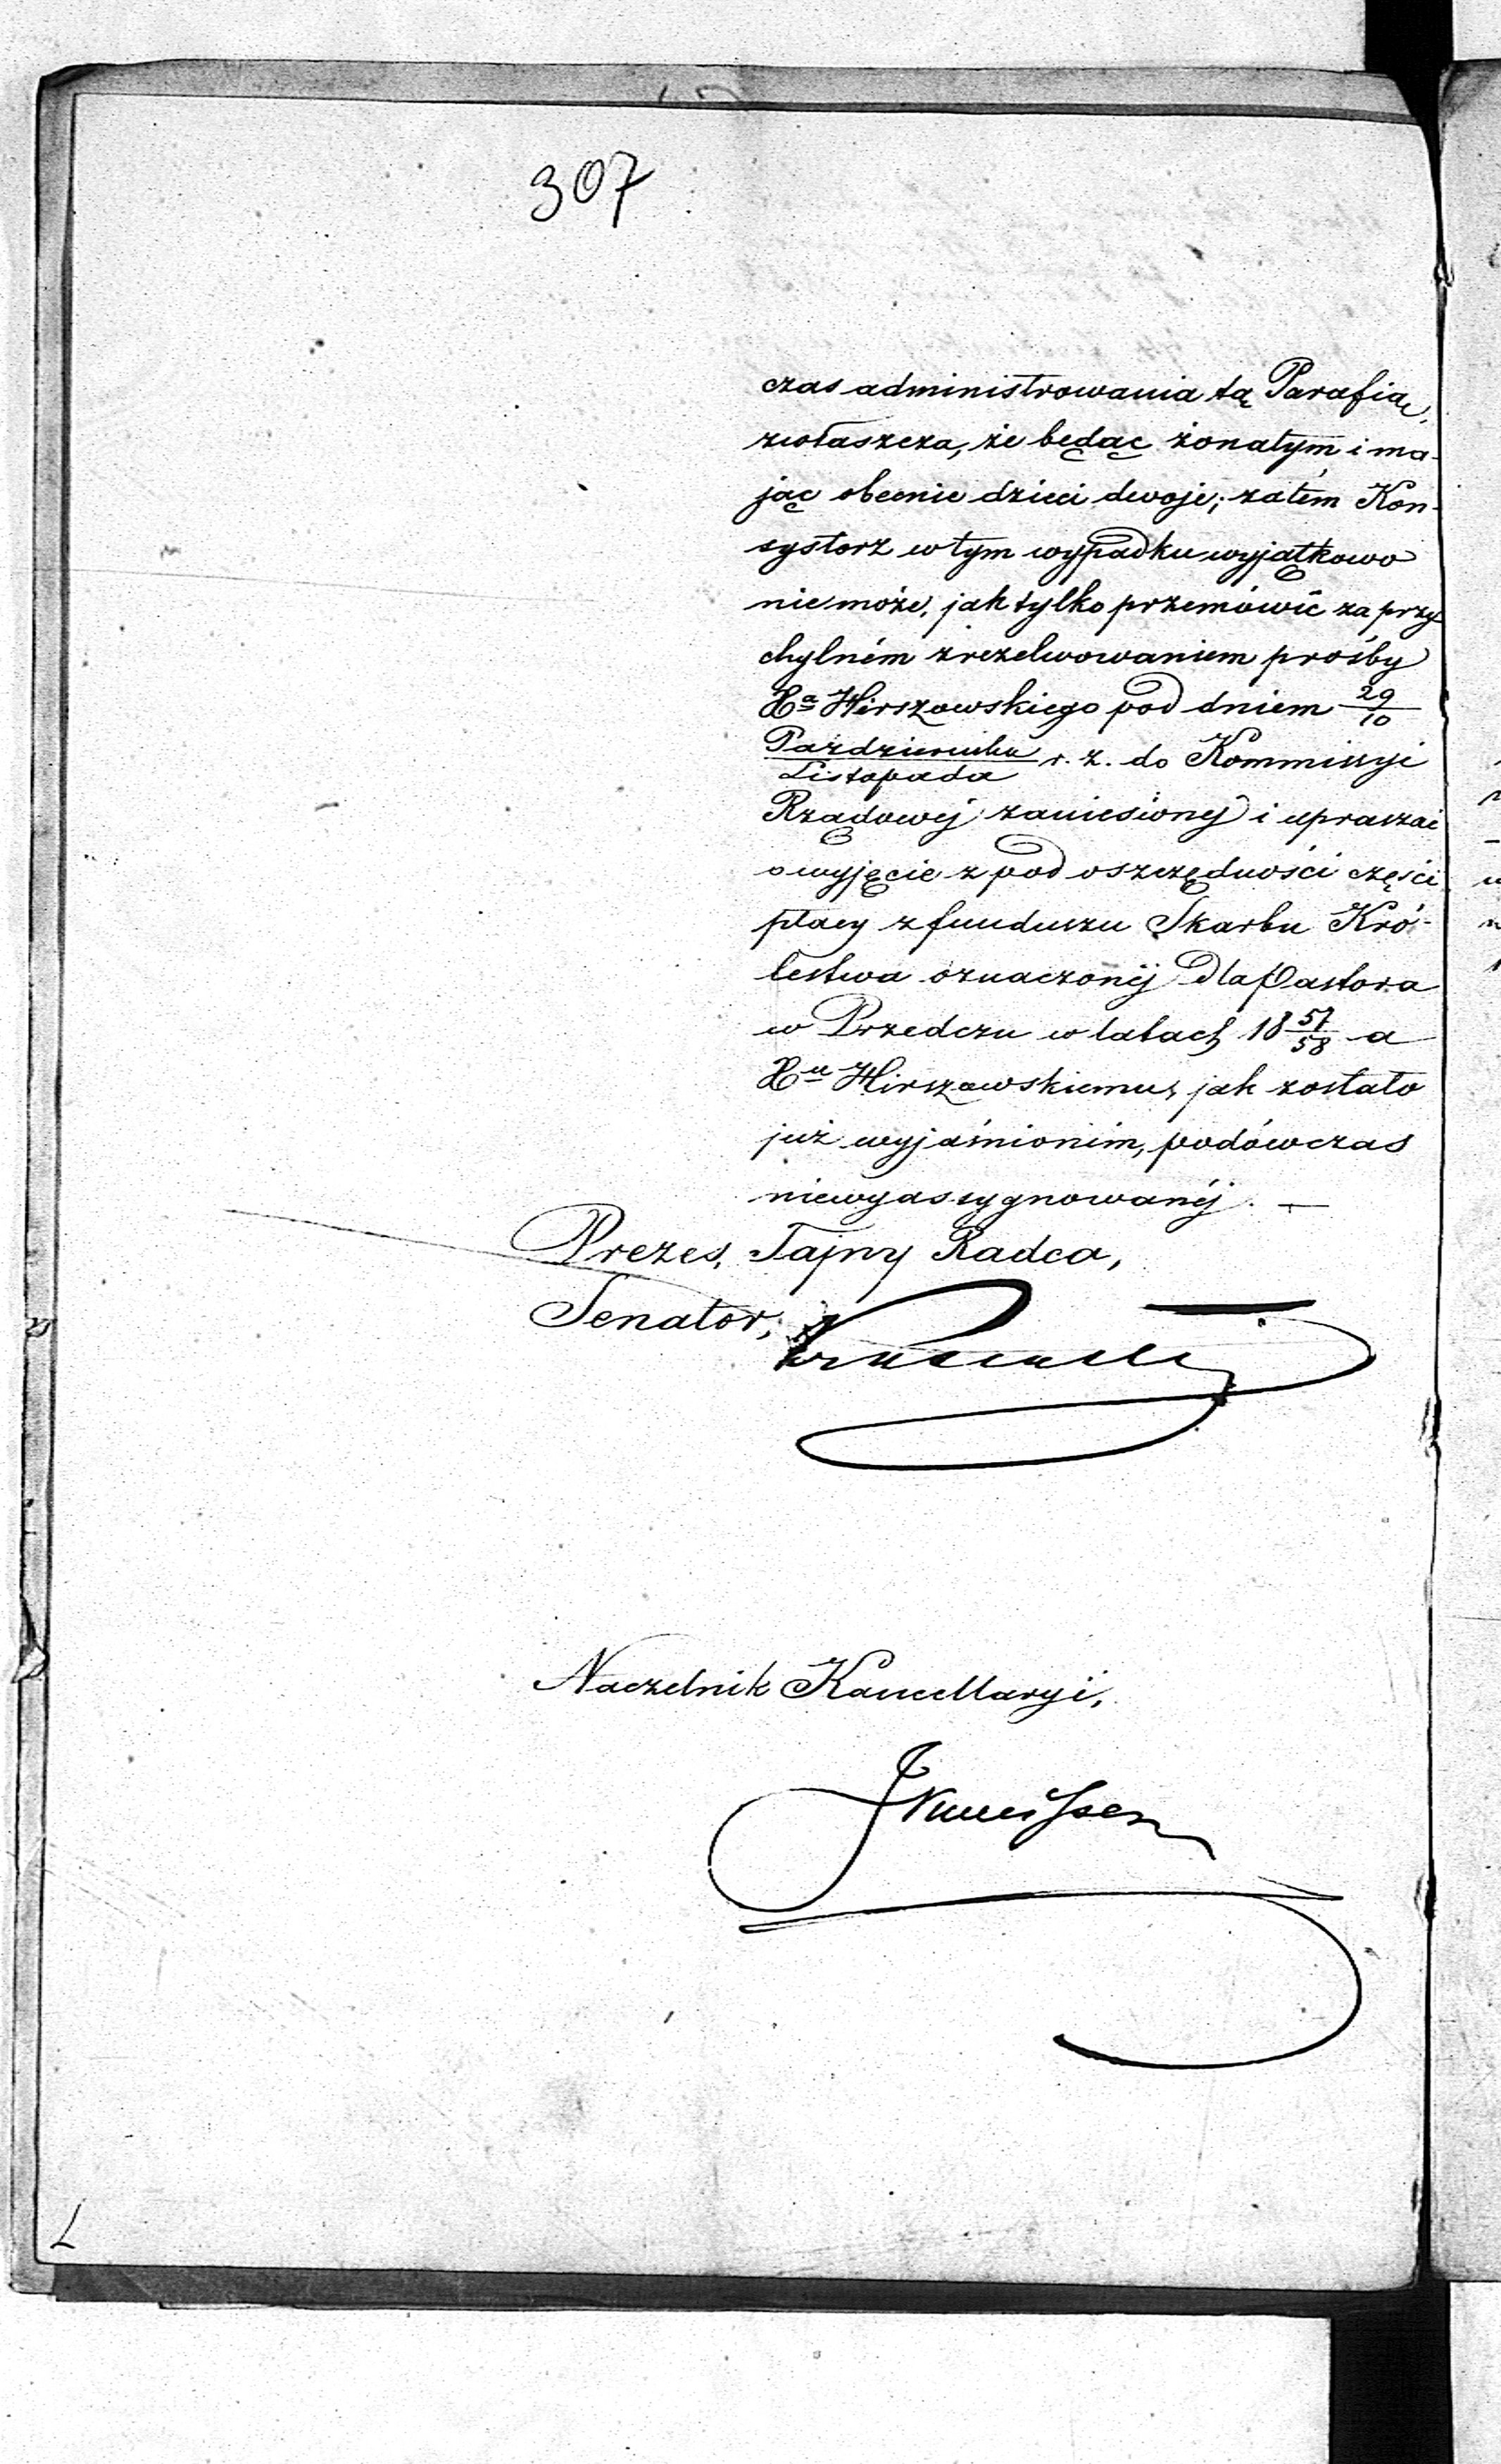 307
czas administrowania tą Parafią,
zwłaszcza, że będąc żonatym i ma-
jąc obecnie dzieci dwoje; zatém Kon-
systorz w tym wypadku wyjątkowo
nie może, jak tylko przemówić za przy
chylném zrezolwowaniem prośby
Xa Hirszowskiego pod dniem 29/10
Pazdziernika/Listopada r. z. do Kommissyi
Rządowéj zaniesionéj i upraszać
o wyjęcie z pod oszczędności części
płacy z funduszu Skarbu Kró-
lestwa oznaczonéj dla Pastora
w Przedczu w latach 18 57/58 a
Xu Hirszowskiemu, jak zostało
już wyjaśnioném, podówczas
niewyassygnowanéj. —
Prezes, Tajny Radca,
Senator,
Naczelnik Kancellaryi,